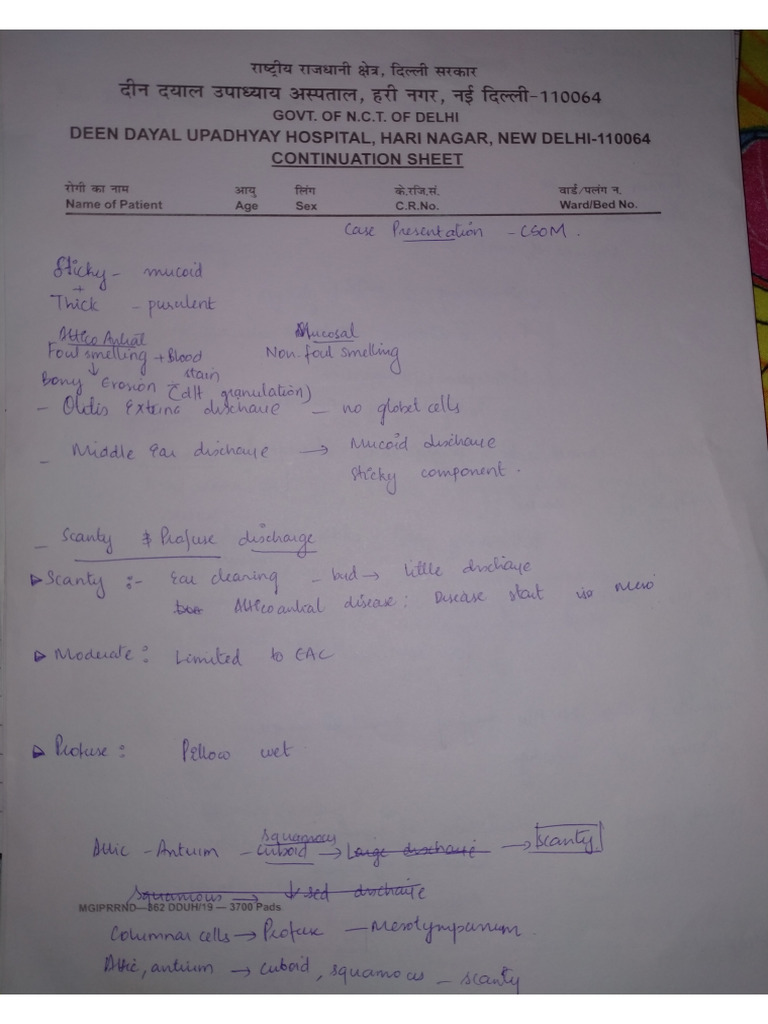 राष्ट्रीय राजधानी क्षेत्र, दिल्ली सरकार
दीन दयाल उपाध्याय अस्पताल, हरी नगर, नई दिल्ली-110064
GOVT. OF N.C.T. OF DELHI
DEEN DAYAL UPADHYAY HOSPITAL, HARI NAGAR, NEW DELHI-110064
CONTINUATION SHEET
रोगी का नाम आयु लिंग के.रजि.सं. वार्ड/पलंग न.
Name of Patient Age Sex C.R.No. Ward/Bed No.
Case Presentation - CSOM.
Sticky - mucoid
+
Thick - purulent
Attico Antral Mucosal
Foul smelling + Blood Non-foul smelling
↓ stain
Bony Erosion (d/t granulation)
- Otitis Externa discharge - no globet cells
- Middle Ear discharge → Mucoid discharge
Sticky component.
- Scanty & Profuse discharge
Scanty :- Ear cleaning - bud → little discharge
Atticoantral disease: Disease start in
Moderate: Limited to EAC
Profuse: Pillow wet
squamous
Attic - Antrum - cuboid → Large discharge → scanty
Squamous → ↓sed discharge
MGIPRRND—862 DDUH/19 — 3700 Pads
Columnar cells → Profuse - Mesotympanum.
Attic, antrum → cuboid, squamous - scanty